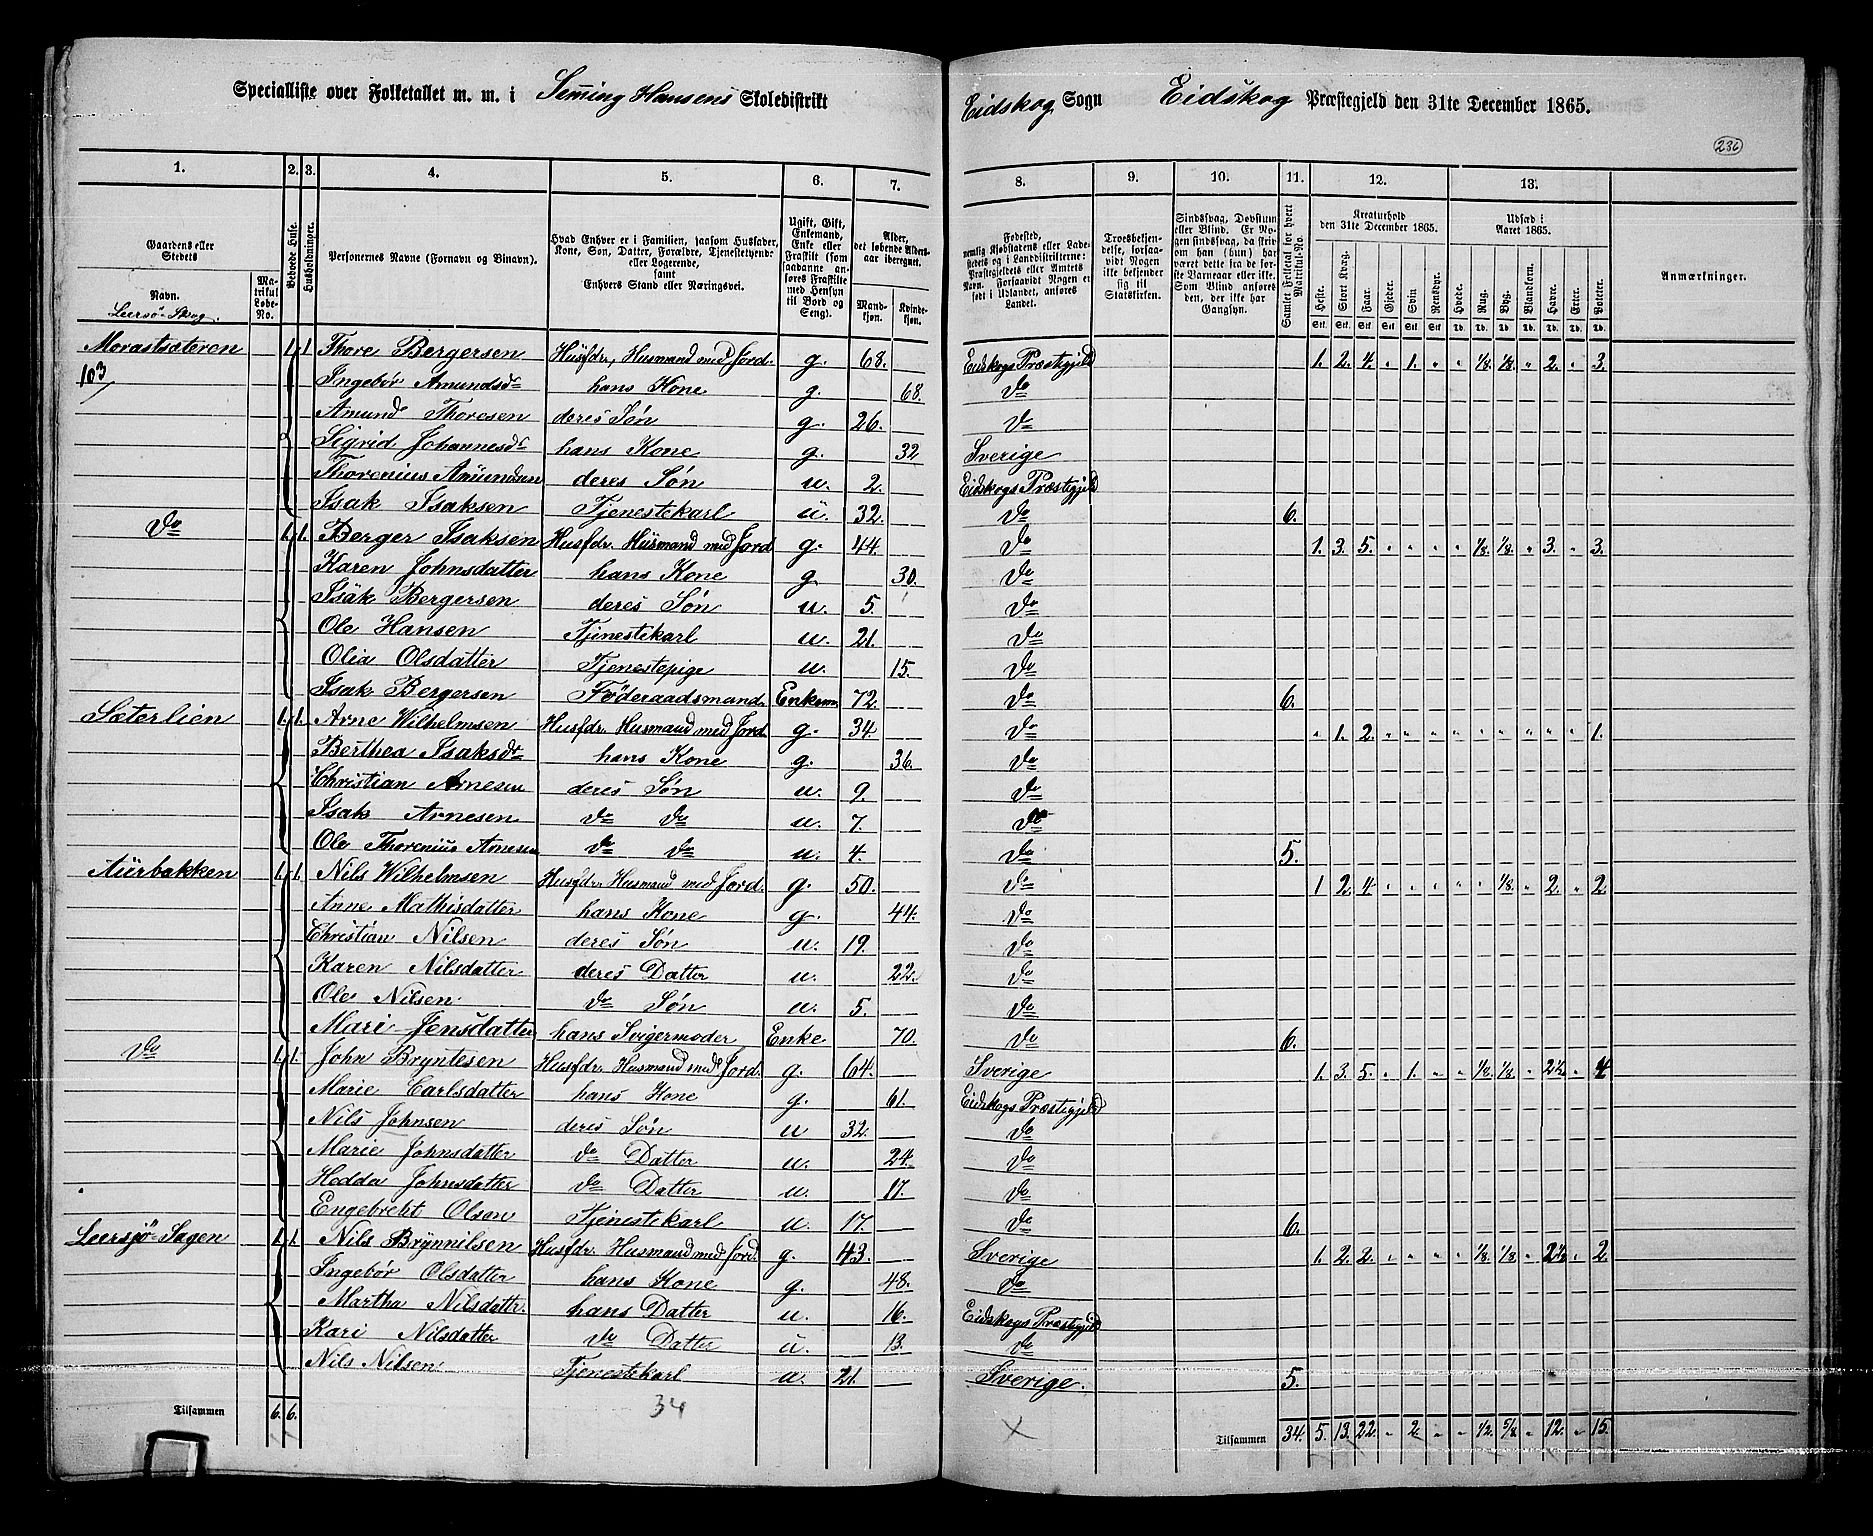 Specialliste over Folketallet m. m. i Seming Hansens Skoledistrikt Eidskog Sogn Eidskog Præstegjeld den 31te December 1865.
236
1. 2. 3. 4. 5. 6. 7. 8. 9. 10. 11. 12. 13.
Gaardens eller Stedets
Navn.
Matrikul Løbe-No.
Beboede Huse.
Husholdninger.
Personernes Navne (Fornavn og Binavn).
Hvad Enhver er i Familien, saasom Husfader, Kone, Søn, Datter, Forældre, Tjenestetyende eller Logerende, samt Enhvers Stand eller Næringsvei.
Ugift, Gift, Enkemand, Enke eller Fraskilt (som saadanne anføres Fraskilte med Hensyn til Bord og Seng).
Alder, det løbende Aldersaar iberegnet.
Mandkjøn. Kvindekjøn.
Fødested, nemlig Kjøbstadens eller Ladestedets og i Landdistrikterne: Præstegjeldets eller Amtets Navn. Forsaavidt Nogen er født i Udlandet, anføres Landet.
Troesbekjendelse, forsaavidt Nogen ikke bekjender sig til Statskirken.
Sindssvag, Døvstum eller Blind. Er Nogen sindssvag, da skrives om han (hun) har været dette fra de første Varneaar eller ikke. Som Blind anføres den, der ikke har Gangsyn.
Samlet Folketal for hvert Matrikul-No.
Kreaturhold den 31te December 1865.
Heste. Stort Kvæg. Faar. Gjeder. Svin. Rensdyr.
Udsæd i Aaret 1865.
Hvede. Rug. Byg. Blandkorn. Havre. Erter. Poteter.
Anmærkninger.
Leersjö-Skog.
Morastsæteren 1. 1. Thore Bergersen Husfdr, Husmand med Jord. g. 68. Eidskogs Præstegjeld 1. 2. 4. " 1. " " 1/8. 1/8. " 2. " 3.
103 Ingebór Amundsdr hans Kone g. 68. Do
Amund Thoresen deres Søn g. 26. Do
Sigrid Johannesdr hans Kone g. 32 Sverige
Thorenius Amundsen deres Søn u. 2. Eidskogs Præstegjeld
Isak Isaksen Tjenestekarl u. 32. Do 6.
Do 1. 1. Berger Isaksen Husfdr. Husmand med Jord g. 44. Do 1. 3. 5. " " " " 1/8. 1/8. " 3. " 3.
Karen Johnsdatter hans Kone g 30. Do
Isak Bergersen deres Søn u. 5. Do
Ole Hansen Tjenestekarl u. 21. Do
Olia Olsdatter Tjenestepige u. 15. Do
Isak Bergersen Föderaadsmand. Enkem. 72. Do 6.
Sæterlien 1. 1. Arne Wilhelmsen Husfdr. Husmand med Jord g. 34. Do " 1. 2. " " " " " " " " " 1.
Berthea Isaksdr hans Kone g. 36. Do
Christian Arnesen deres Søn u. 9. Do
Isak Arnesen Do Do u. 7. Do
Ole Thorenius Arnesen Do Do u. 4. Do 5.
Aurbakken 1. 1. Nils Wilhelmsen Husfdr. Husmand med Jord. g. 50. Do 1 2. 4. " " " " " 1/8. " 2. " 2.
Anne Mathisdatter hans Kone g. 44. Do
Christian Nilsen deres Søn u. 19. Do
Karen Nilsdatter deres Datter u. 22. Do
Ole Nilsen Do Søn u. 5. Do
Mari Jensdatter hans Svigermoder Enke 70. Do 6.
Do 1. 1. John Bryntesen Husfdr. Husmand med Jord. g. 64. Sverige 1. 3. 5. " 1. " " 1/8. 1/8. " 2½. " 4
Marie Carlsdatter hans Kone g. 61. Eidskogs Præstegjeld
Nils Johnsen deres Søn u 32. Do
Marie Johnsdatter Do Datter u. 24. Do
Hedda Johnsdatter Do Datter u. 17. Do
Engebreht Olson Tjenestekarl u. 17. Do 6.
Leersjö-Sagen 1. 1. Nils Brynnilsen Husfdr. Husmand med Jord. g. 43. Sverige 1. 2. 2. " " " " 1/8. 1/8. " 2½. " 2.
Ingebór Olsdatter hans Kone g. 48. Do
Martha Nilsdattr. hans Datter u. 16. Eidskogs Præstegjeld
Kari Nilsdatter Do Datter u. 13. Do
Nils Nilsen Tjenestekarl u. 21. Sverige. 5.
Tilsammen 6. 6. 34 Tilsammen 34. 5. 13. 22. " 2. " " 1/2. 5/8. " 12. " 15.